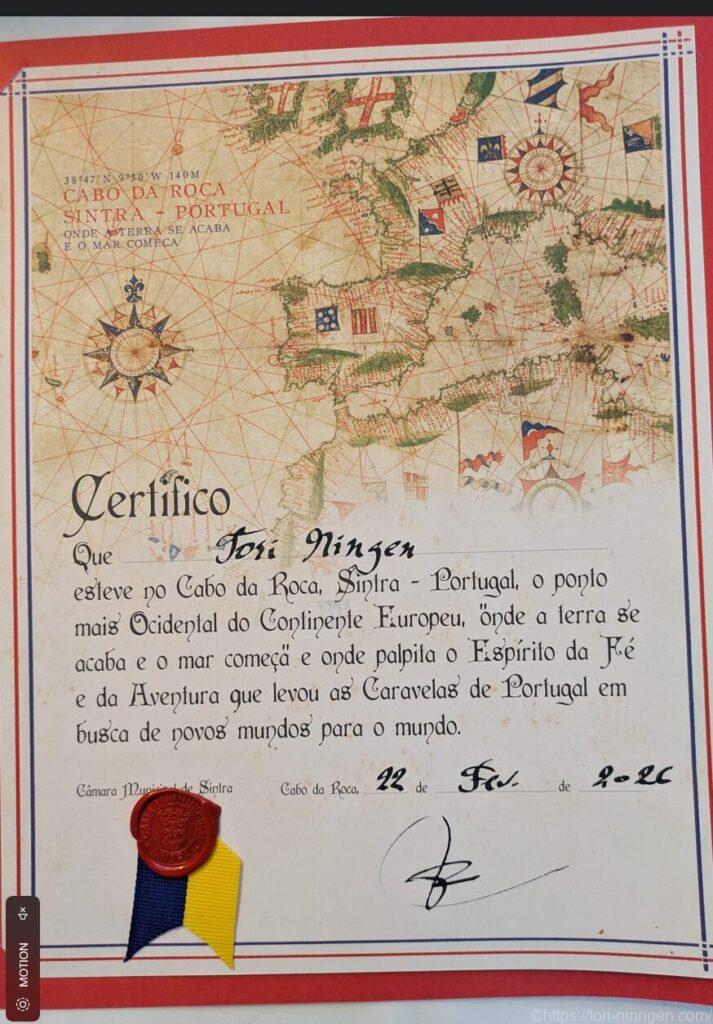 38°47'N 9°30'W 140M
CABO DA ROCA
SINTRA - PORTUGAL
ONDE A TERRA SE ACABA
E O MAR COMEÇA
Certifico
Que Tori Ningen
esteve no Cabo da Roca, Sintra - Portugal, o ponto
mais Ocidental do Continente Europeu, "onde a terra se
acaba e o mar começa" e onde palpita o Espírito da Fé
e da Aventura que levou as Caravelas de Portugal em
busca de novos mundos para o mundo.
Câmara Municipal de Sintra
Cabo da Roca, 22 de Fev. de 2026
MOTION
©https://tori-ninngen.com/